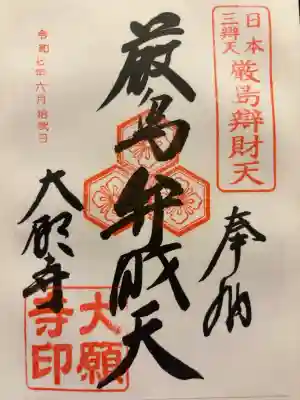 日本
三辯天
厳島辯財天
奉納
厳島弁財天
令和七年六月拾弐日
大願寺
大願
寺印